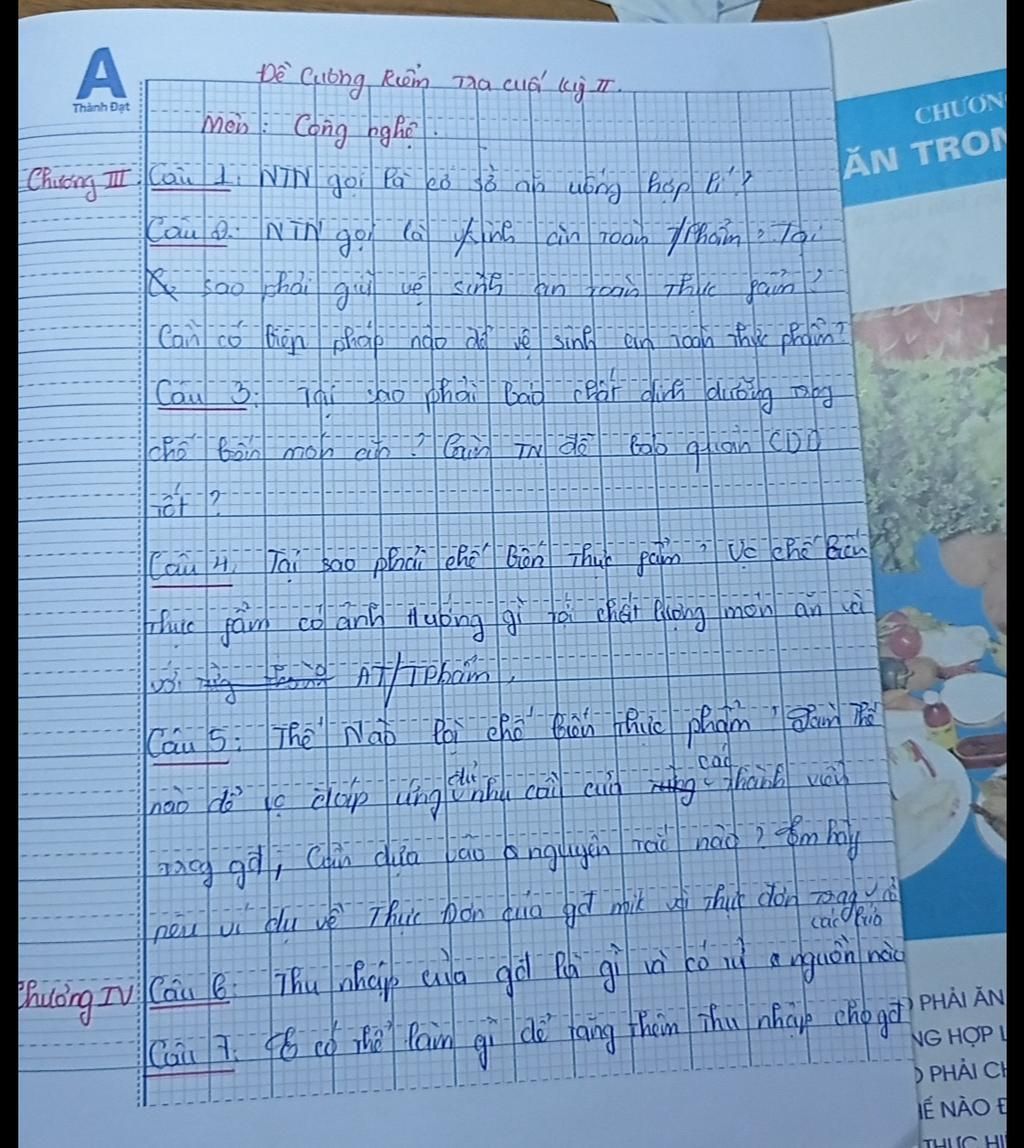 A
Thành Đạt
Đề Cương Kiểm Tra cuối kỳ II.
Môn: Công nghệ.
CHƯƠN
ĂN TRON
Chương III Câu 1. NTN gọi là cơ sở ăn uống hợp lí?
Câu 2. NTN gọi là sinh an toàn T/Phẩm? Tại
sao phải giữ vệ sinh an toàn thực fẩm?
Cần có biện pháp nào để vệ sinh an toàn thực phẩm?
Câu 3: Tại sao phải bảo chất dinh dưỡng trong
chế biến món ăn? Cần TN để bảo quản CDD
tốt?
Câu 4. Tại sao phải chế biến thực fẩm? Vc chế biến
thực fẩm có ảnh hưởng gì tới chất lượng món ăn và
với AT/TPhẩm,
Câu 5: Thế Nào là chế biến thực phẩm, Làm thế
nào để vc đáp ứng đủ nhu cầu của các thành viên
trong gđ, Cần dựa vào nguyên tắc nào? Em hãy
nêu ví dụ về Thực Đơn của gđ mik với thực đơn trong và
các bữa
Chương IV Câu 6: Thu nhập của gđ là gì và có từ nguồn nào
Câu 7. có thể làm gì để tăng thêm thu nhập cho gđ
PHẢI ĂN
NG HỢP L
PHẢI CH
HẾ NÀO Đ
THỰC HI